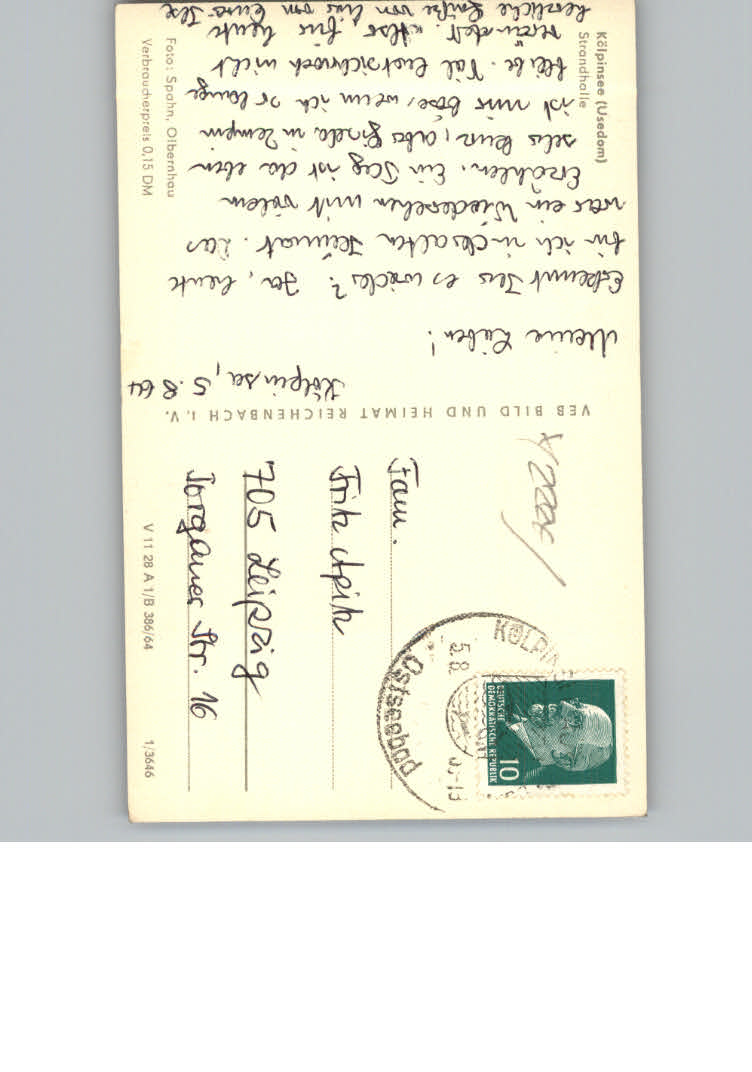 Kölpinsee (Usedom)
Strandhalle
Kölpinsee, 5.8.64
Meine Lieben!
Erkennt Ihr es wieder? Ja, heute
bin ich in der alten Heimat. Das
war ein Wiedersehen mit vielem
Erzählen. Ein Tag ist da eben
sehr kurz, aber Gisela in Zempin
ist mir böse, wenn ich so lange
bleibe. Viel hat sich noch nicht
verändert. Also, für heute
herzliche Grüße von Eurer Ilse
Foto: Spahn, Olbernhau
Verbraucherpreis 0,15 DM
VEB BILD UND HEIMAT REICHENBACH i. V.
V 11 28 A 1/B 386/64
1/3646
Fam.
Fritz Apitz
705 Leipzig
Torgauer Str. 16
KÖLPIN
Ostseebad
5.8.
DEUTSCHE
DEMOKRATISCHE REPUBLIK
10